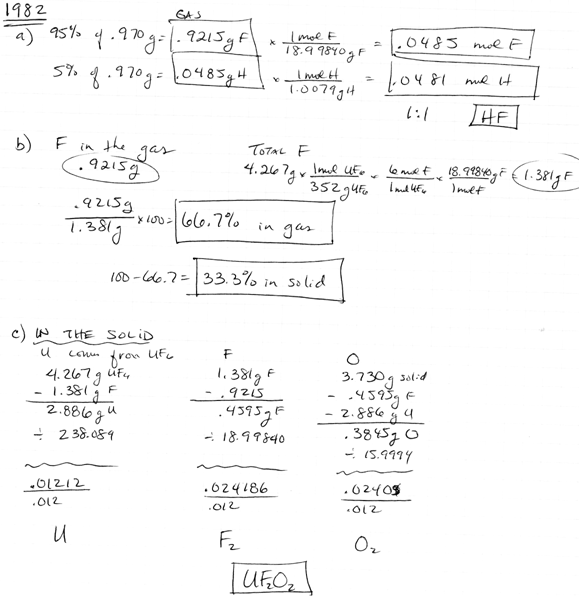 1982
GAS
a) 95% of .970g = .9215g F × 1mol F / 18.99840g F = .0485 mol F
5% of .970g = .0485g H × 1mol H / 1.0079g H = .0481 mol H
1:1 HF
b) F in the gas
.9215g
TOTAL F
4.267g × 1mol UF6 / 352g UF6 × 6mol F / 1mol UF6 × 18.99840g F / 1mol F = 1.381g F
.9215g / 1.381g × 100 = 66.7% in gas
100 - 66.7 = 33.3% in solid
c) IN THE SOLID
U comes from UF6
4.267g UF6
- 1.381g F
2.886g U
÷ 238.089
.01212
.012
U
F
1.381g F
- .9215
.4595g F
÷ 18.99840
.024186
.012
F2
O
3.730g solid
- .4595g F
- 2.886g U
.3845g O
÷ 15.9994
.02403
.012
O2
UF2O2